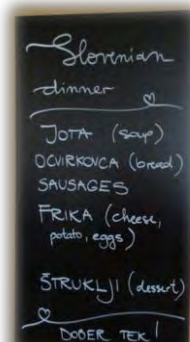 Slovenian
dinner
JOTA (soup)
OCVIRKOVCA (bread)
SAUSAGES
FRIKA (cheese,
potato, eggs)
ŠTRUKLJI (dessert)
DOBER TEK!